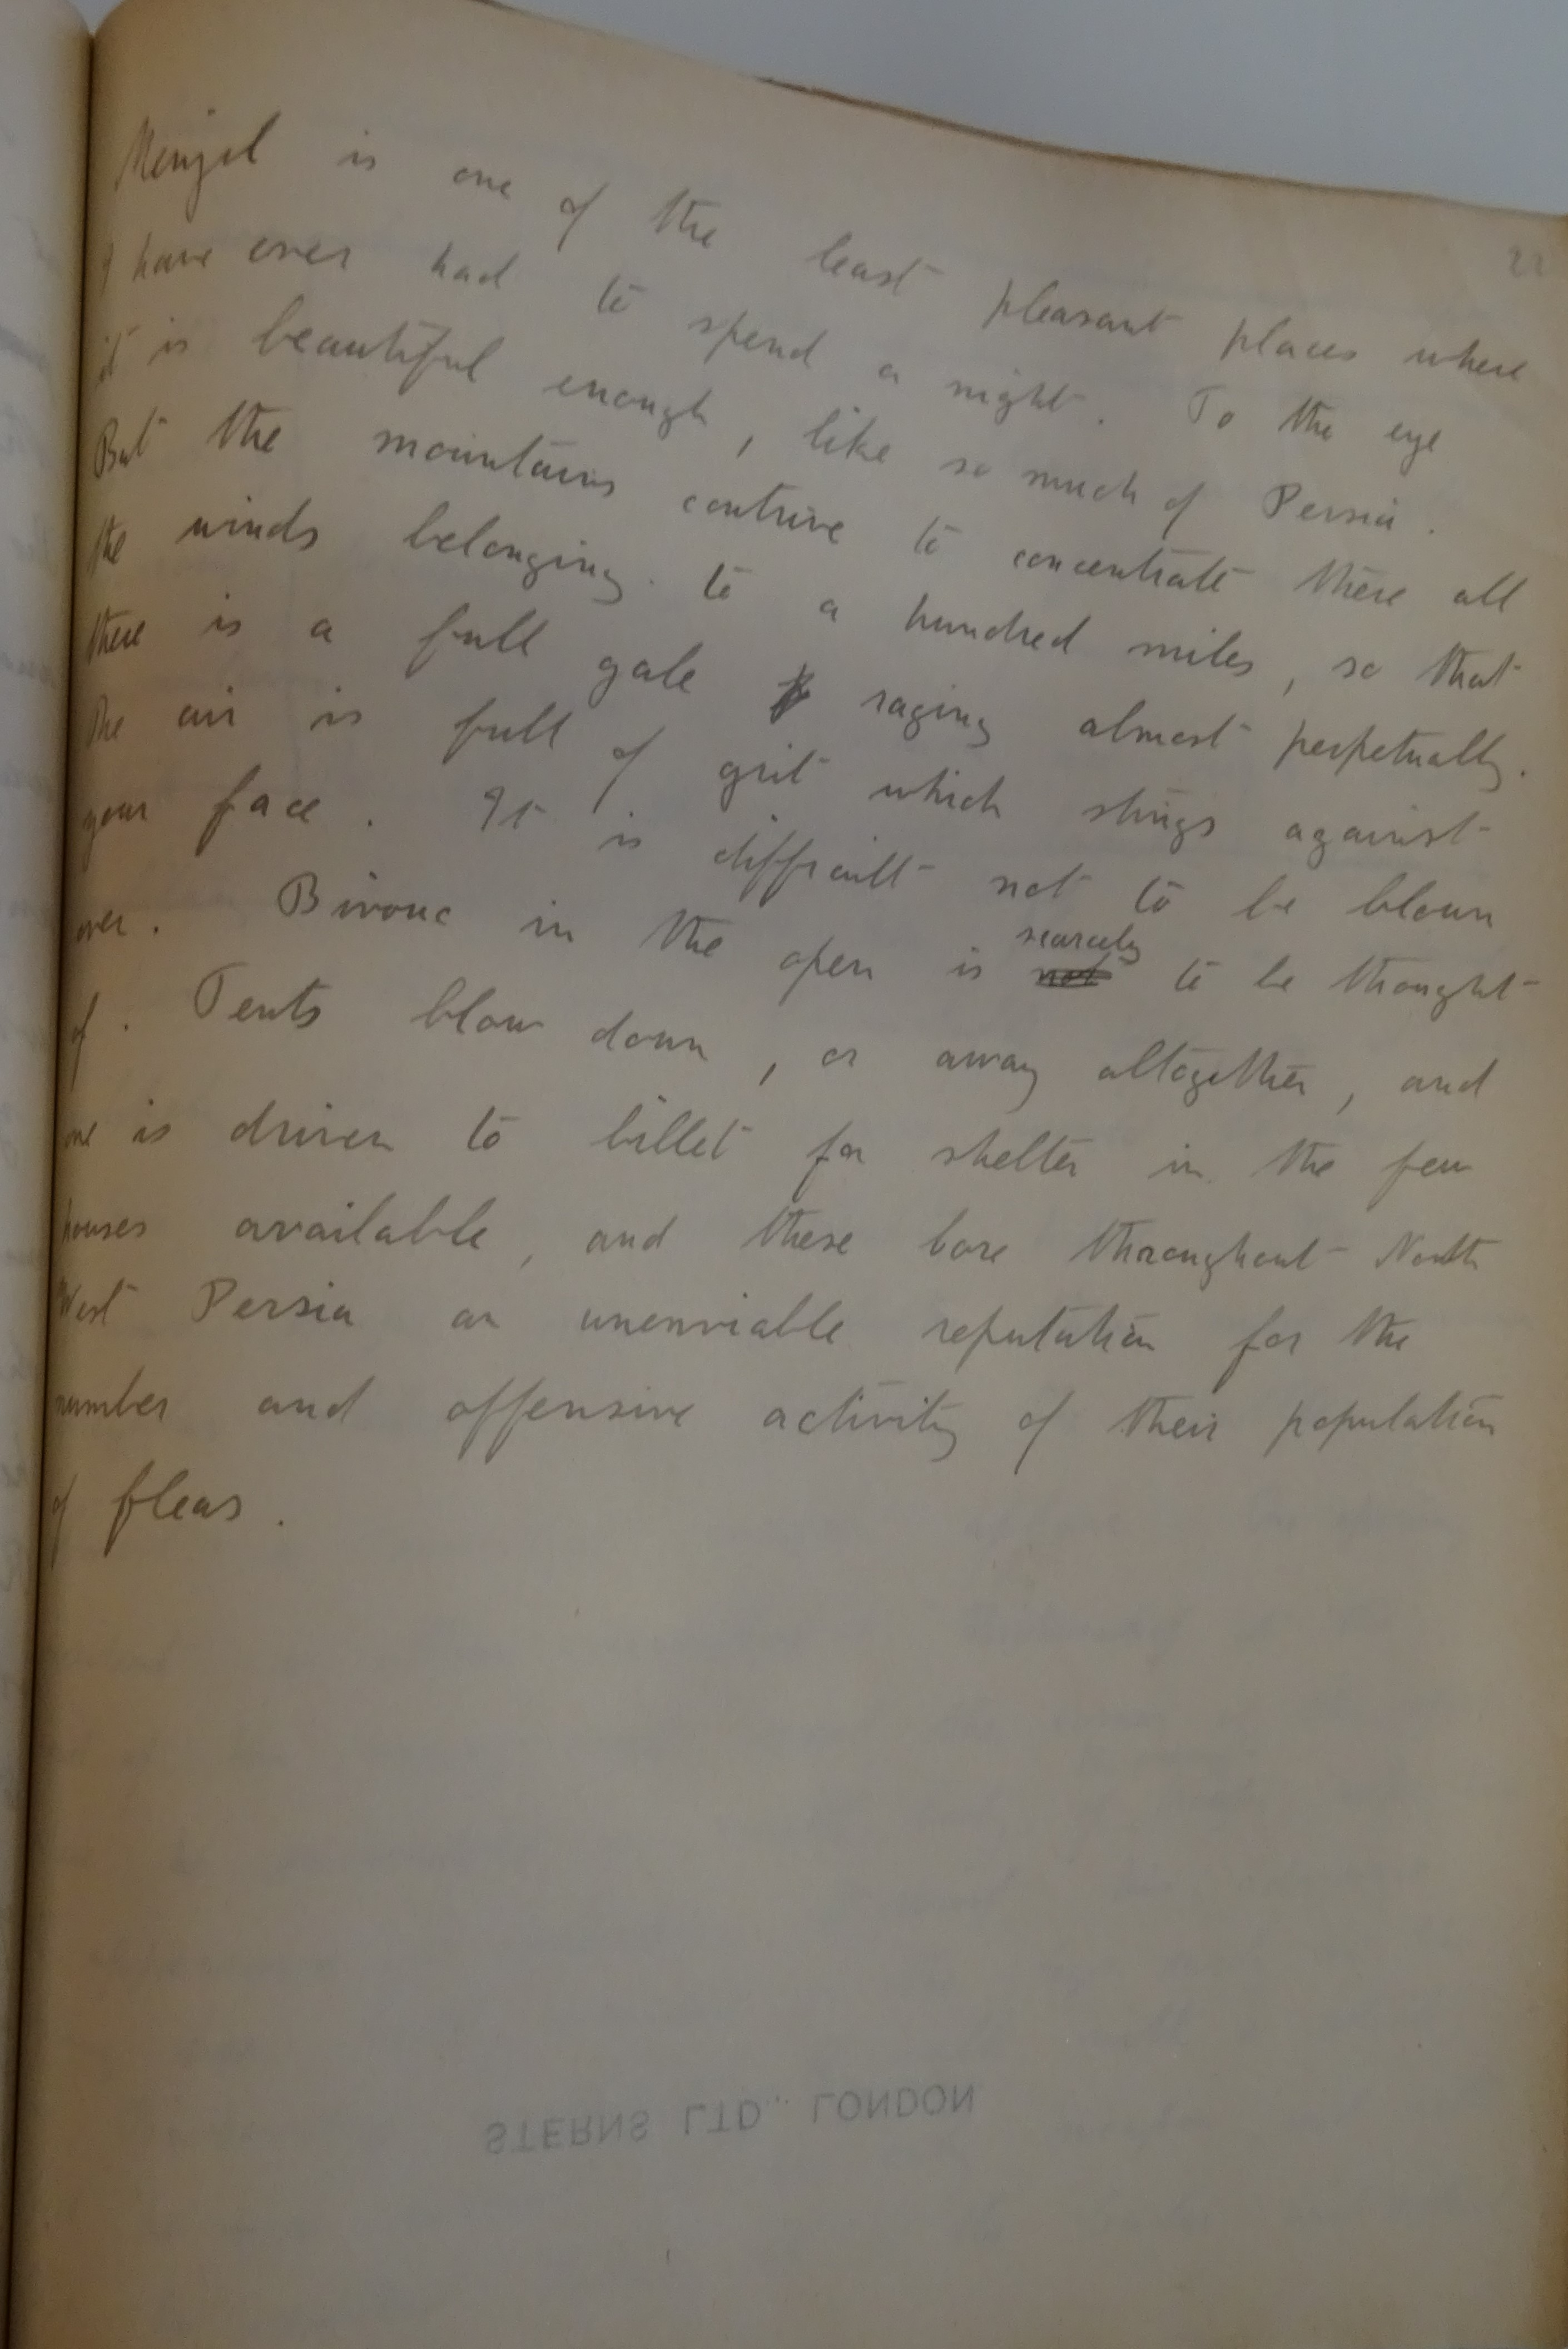 22
Menjil is one of the least pleasant places where
I have ever had to spend a night. To the eye
it is beautiful enough, like so much of Persia.
But the mountains contrive to concentrate there all
the winds belonging to a hundred miles, so that
there is a full gale raging almost perpetually.
The air is full of grit which stings against
your face. It is difficult not to be blown
over. Bivouac in the open is scarcely to be thought
of. Tents blow down, or away altogether, and
one is driven to billet for shelter in the few
houses available, and these bore throughout North
West Persia an unenviable reputation for the
number and offensive activity of their population
of fleas.
STERNS LTD., LONDON